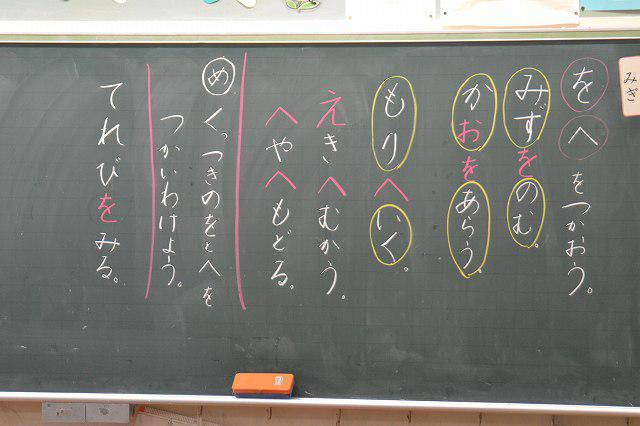 みぎ
をへをつかおう。
みずをのむ。
かおをあらう。
もりへいく。
えきへむかう。
へやへもどる。
めくっつきのをとへを
つかいわけよう。
てれびをみる。